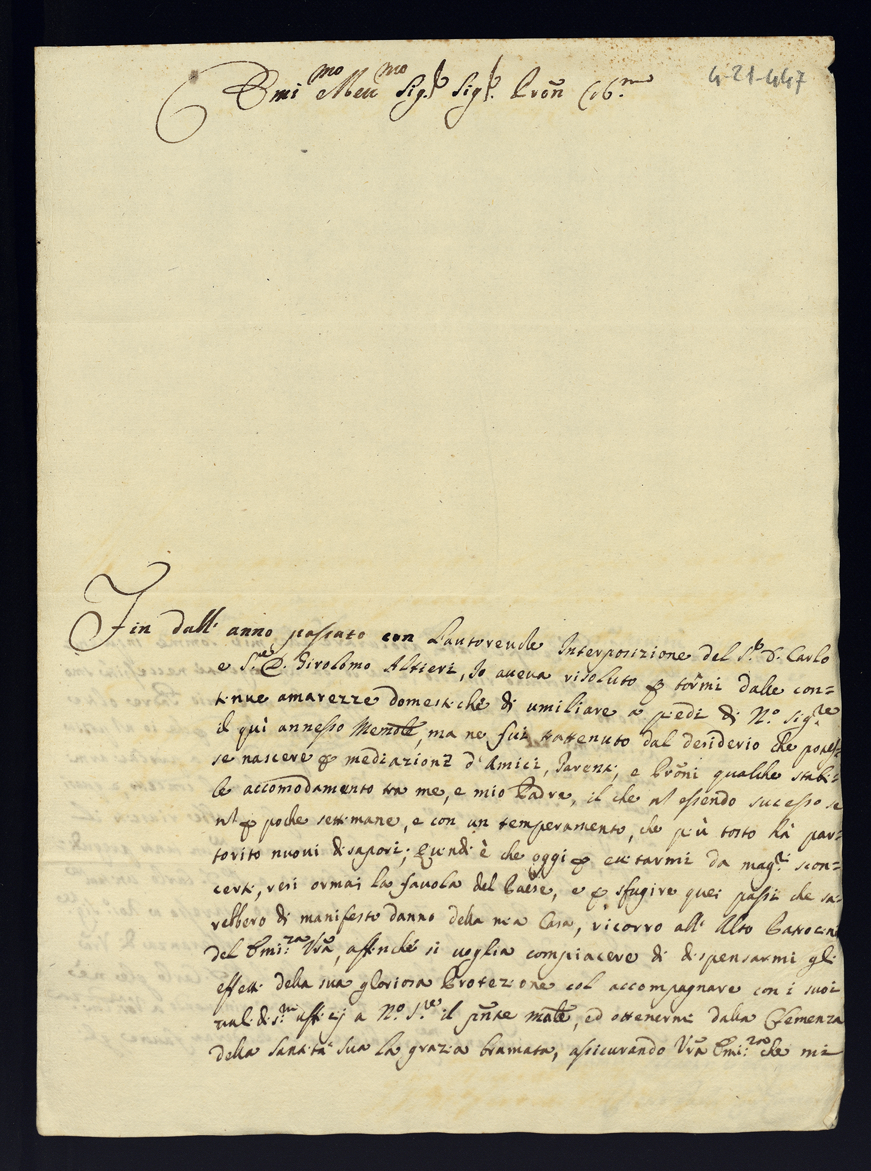 4-21-447
Emi.mo Reu.mo Sig.r Sig.r Pron Co.mo
Fin dall'anno passato con l'autoreuole Interposizione del S.r D. Carlo
e S.r D. Girolomo Altieri, Io aueua risoluto p tormi dalle con=
tinue amarezze domestiche di umiliare a piedi di N.o Sig.re
il quì annesso Memle, ma ne fui trattenuto dal desiderio che potes=
se nascere p mediazioni d'Amici, Parenti, e Proni qualche stabi=
le accomodamento tra me, e mio Padre, il che nt essendo successo se
nt p poche settimane, e con un temperamento, che più tosto hà par=
torito nuoui disapori; Quindi è che oggi p euitarmi da magri scon=
certi, resi ormai la fauola del Paese, e p sfugire quei passi che sa=
rebbero di manifesto danno della mia Casa, ricorro all'Alto Patrocin
del Emi.za Vra, affinche si uoglia compiacere di dispensarmi gli
effetti della sua gloriosa Protezione col accompagnare con i suoi
ual.di s.mi ufficij a N.o S.re il pnte male, ed ottenerne dalla Clemenza
della Santità sua la grazia bramata, assicurando Vra Emi.za che mi